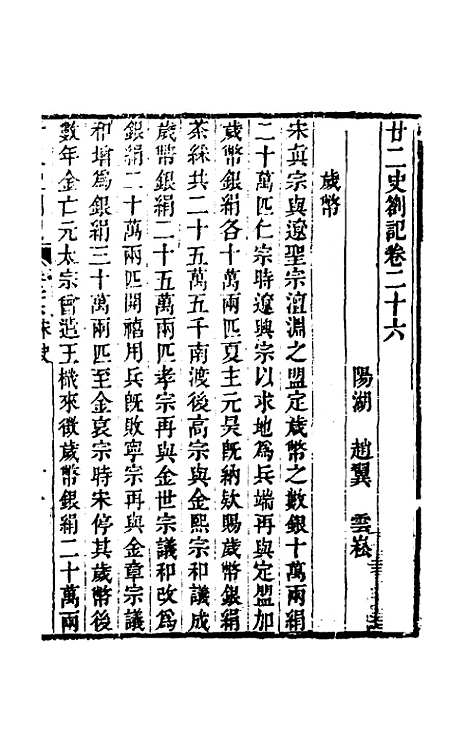 廿二史劄記卷二十六
陽湖 趙翼 雲崧
歲幣
宋真宗與遼聖宗澶淵之盟定歲幣之數銀十萬兩絹
二十萬匹仁宗時遼興宗以求地為兵端再與定盟加
歲幣銀絹各十萬兩匹夏主元昊既納欵賜歲幣銀絹
茶綵共二十五萬五千南渡後高宗與金熙宗和議成
歲幣銀絹二十五萬兩匹孝宗再與金世宗議和改為
銀絹二十萬兩匹開禧用兵既敗寧宗再與金章宗議
和增為銀絹三十萬兩匹至金哀宗時宋停其歲幣後
數年金亡元太宗曾遣王檝來徵歲幣銀絹二十萬兩